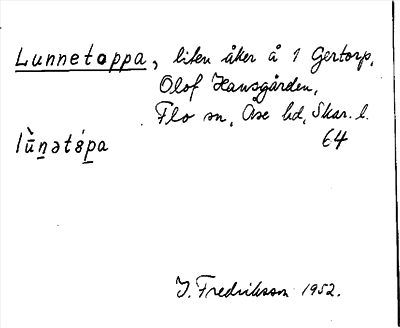 Lunnetoppa, liten åker å 1 Gertorp,
Olof Hansgården,
Flo sn, Åse hd, Skar. l.
64
lù̄n̠ətŏ́p̠a
I. Fredriksson 1952.